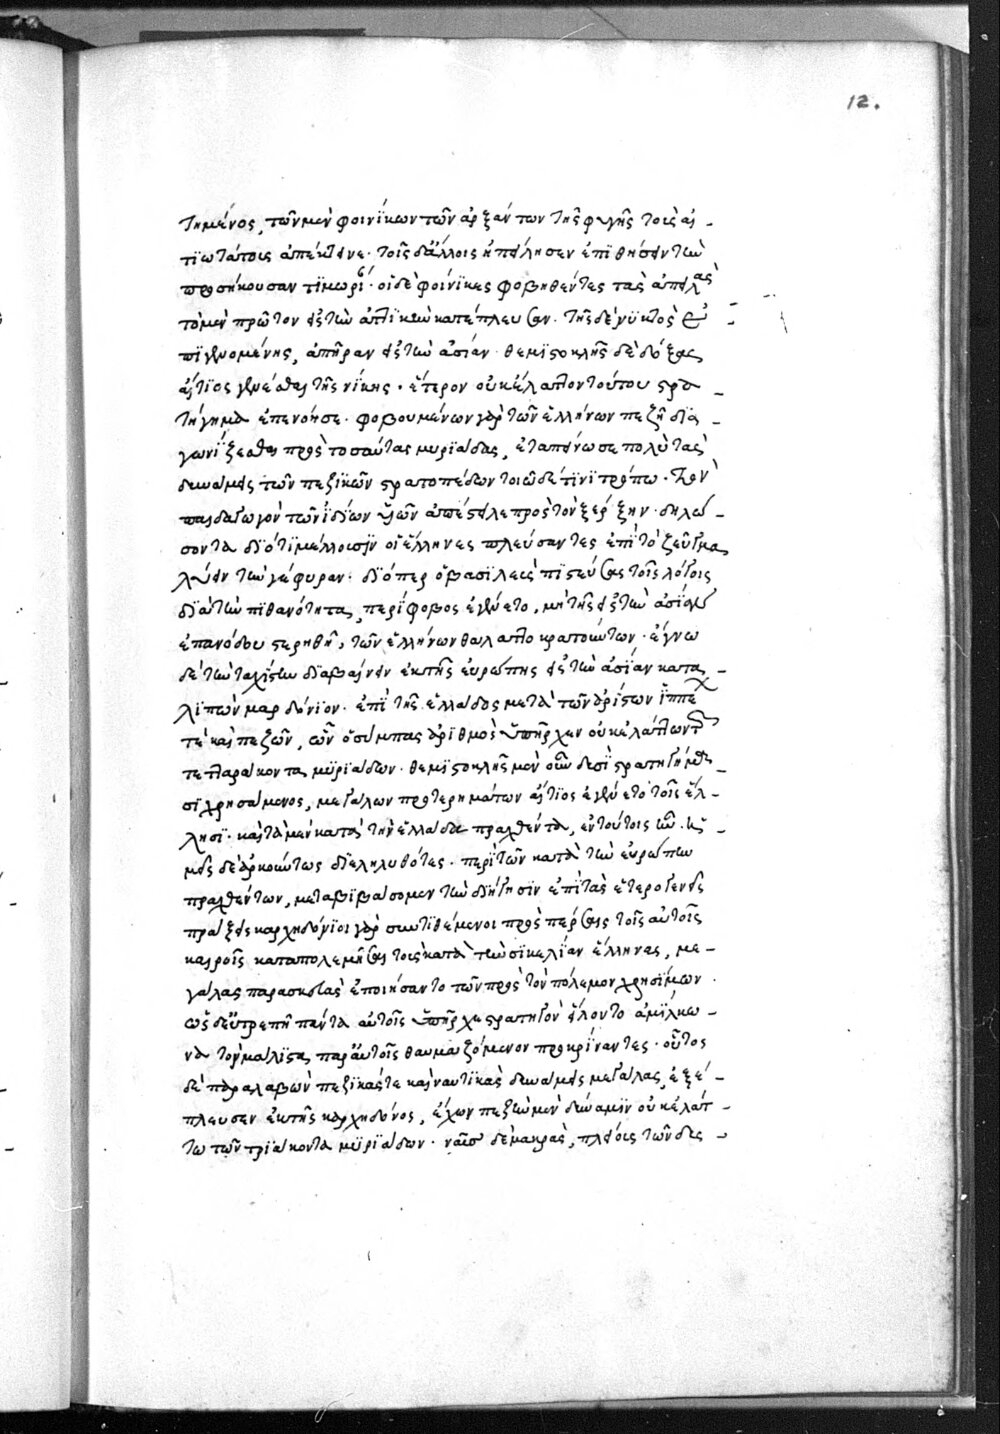 12.
τημένος, τῶν μὲν φοινίκων τῶν ἀρξάντων τῆς φυγῆς τοὺς αἰ-
τϊωτάτους ἀπέκτεινε· τοῖς δ' ἄλλοις ἠπείλησεν ἐπϊθήσειν τὴν
προσήκουσαν τϊμωρί· οἱ δὲ φοινϊκες φοβηθέντες τὰς ἀπειλὰς
τὸ μὲν πρῶτον εἰς τὴν ἀττϊκὴν κατέπλευσαν. τῆς δὲ νυκτὸς ἐ-
πϊγενομένης, ἀπῆραν εἰς τὴν ἀσίαν· θεμϊστοκλῆς δὲ δόξας
αἴτϊος γενέσθαι τῆς νίκης· ἕτερον οὐκ ἔλαττον τούτου στρα-
τήγημα ἐπενόησε· φοβουμένων γὰρ τῶν ἑλλήνων πεζῇ δϊα-
γωνίζεσθαι πρὸς τοσαύτας μυρϊάδας, ἐταπείνωσε πολὺ τὰς
δυνάμεις τῶν πεζϊκῶν στρατοπέδων τοιῶδέ τϊνϊ τρόπω· τὸν
παιδαγωγὸν τῶν ἰδίων υἱῶν ἀπέστειλε πρὸς τὸν ξέρξην· δηλώ-
σοντα δϊότϊ μέλλουσϊν οἱ ἕλληνες πλεύσαντες ἐπϊ τὸ ζεῦγμα
λύειν τὴν γέφυραν· δϊόπερ ὁ βασϊλεὺς πϊστεύσας τοῖς λόγοις
δϊὰ τὴν πϊθανότητα, περίφοβος ἐγένετο, μὴ τῆς εἰς τὴν ἀσίαν
ἐπανόδου στερηθῆ, τῶν ἑλλήνων θαλαττοκρατούντων· ἔγνω
δὲ τὴν ταχίστην δϊαβαίνειν ἐκ τῆς εὐρώπης εἰς τὴν ἀσίαν κατα-
λϊπὼν μαρδόνϊον· ἐπὶ τῆς ἑλλάδος μετὰ τῶν ἀρίστων ἱππέ
τὲ καὶ πεζῶν, ὧν ὁ σύμπας ἀρϊθμὸς ὑπῆρχεν οὐκ ἐλάττων
τετταράκοντα μϋρϊάδων· θεμϊστοκλῆς μὲν οὖν δυσϊ στρατηγήμα-
σϊ χρησάμενος, μεγάλων προτερημάτων αἴτϊος ἐγένετο τοῖς ἕλ-
λησϊ· καὶ τὰ μὲν κατὰ τὴν ἑλλάδα πραχθέντα, ἐν τούτοις ἦν. ἡ-
μεῖς δὲ ἀρκούντως δϊεληλυθότες· περὶ τῶν κατὰ τὴν εὐρώπην
πραχθέντων, μεταβϊβάσομεν τὴν δϊήγησϊν ἐπϊ τὰς ἑτερογενεῖς
πράξεις καρχηδόνϊοι γὰρ συντϊθέμενοι πρὸς πέρσας τοῖς αὐτοῖς
καιροῖς καταπολεμῆσαι τοὺς κατὰ τὴν σϊκελίαν ἕλληνας, με-
γάλας παρασκευὰς ἐποιήσαντο τῶν πρὸς τὸν πόλεμον χρησϊμων·
ὡς δ' εὐτρεπῆ πάντα αὐτοῖς ὑπῆρχε στρατηγὸν εἵλοντο ἀμϊλκω-
να τὸν μάλϊστα παρ' αὐτοῖς θαυμαζόμενον προκρίναντες· οὗτος
δὲ παραλαβὼν πεζϊκάς τε καὶ ναυτϊκὰς δυνάμεις μεγάλας, ἐξέ-
πλευσεν ἐκ τῆς καρχηδόνος, ἔχων πεζὴν μὲν δύναμϊν οὐκ ἐλάτ-
τω τῶν τρϊάκοντα μϋρϊάδων· ναῦς δὲ μακρὰς, πλείους τῶν δϊα-